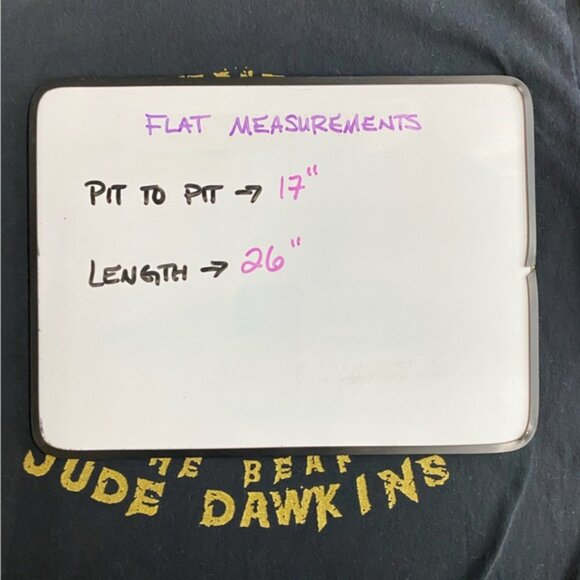 FLAT MEASUREMENTS
PIT TO PIT → 17"
LENGTH → 26"
JUDE DAWKINS